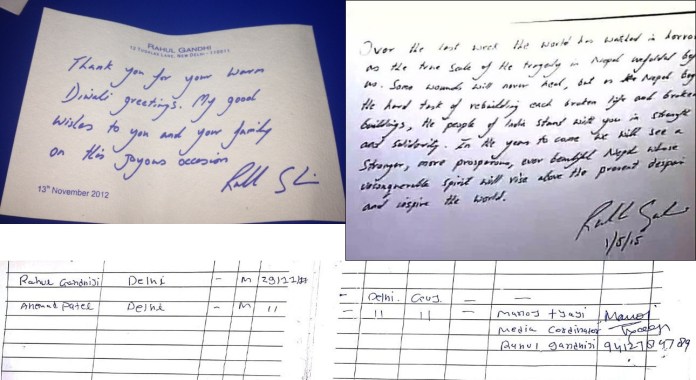 RAHUL GANDHI
12 TUGHLAK LANE, NEW DELHI - 110011
Thank you for your warm
Diwali greetings. My good
wishes to you and your family
on this joyous occasion
13th November 2012
Over the last week the world has watched in horror
as the true scale of the tragedy in Nepal unfolded
us. Some wounds will never heal, but as Nepal
the hard task of rebuilding each broken life and broken
buildings, the people of India stand with you in strength
and solidarity. In the years to come we will see a
stronger, more prosperous, ever beautiful Nepal whose
spirit will rise above the present despair
and inspire the world.
1/5/15
Rahul Gandhiji Delhi - M
Ahemad Patel Delhi - M 11
- Delhi. - -
- 11 11 - Manoj tyagi Manoj
Media Cordinator
Rahul gandhiji